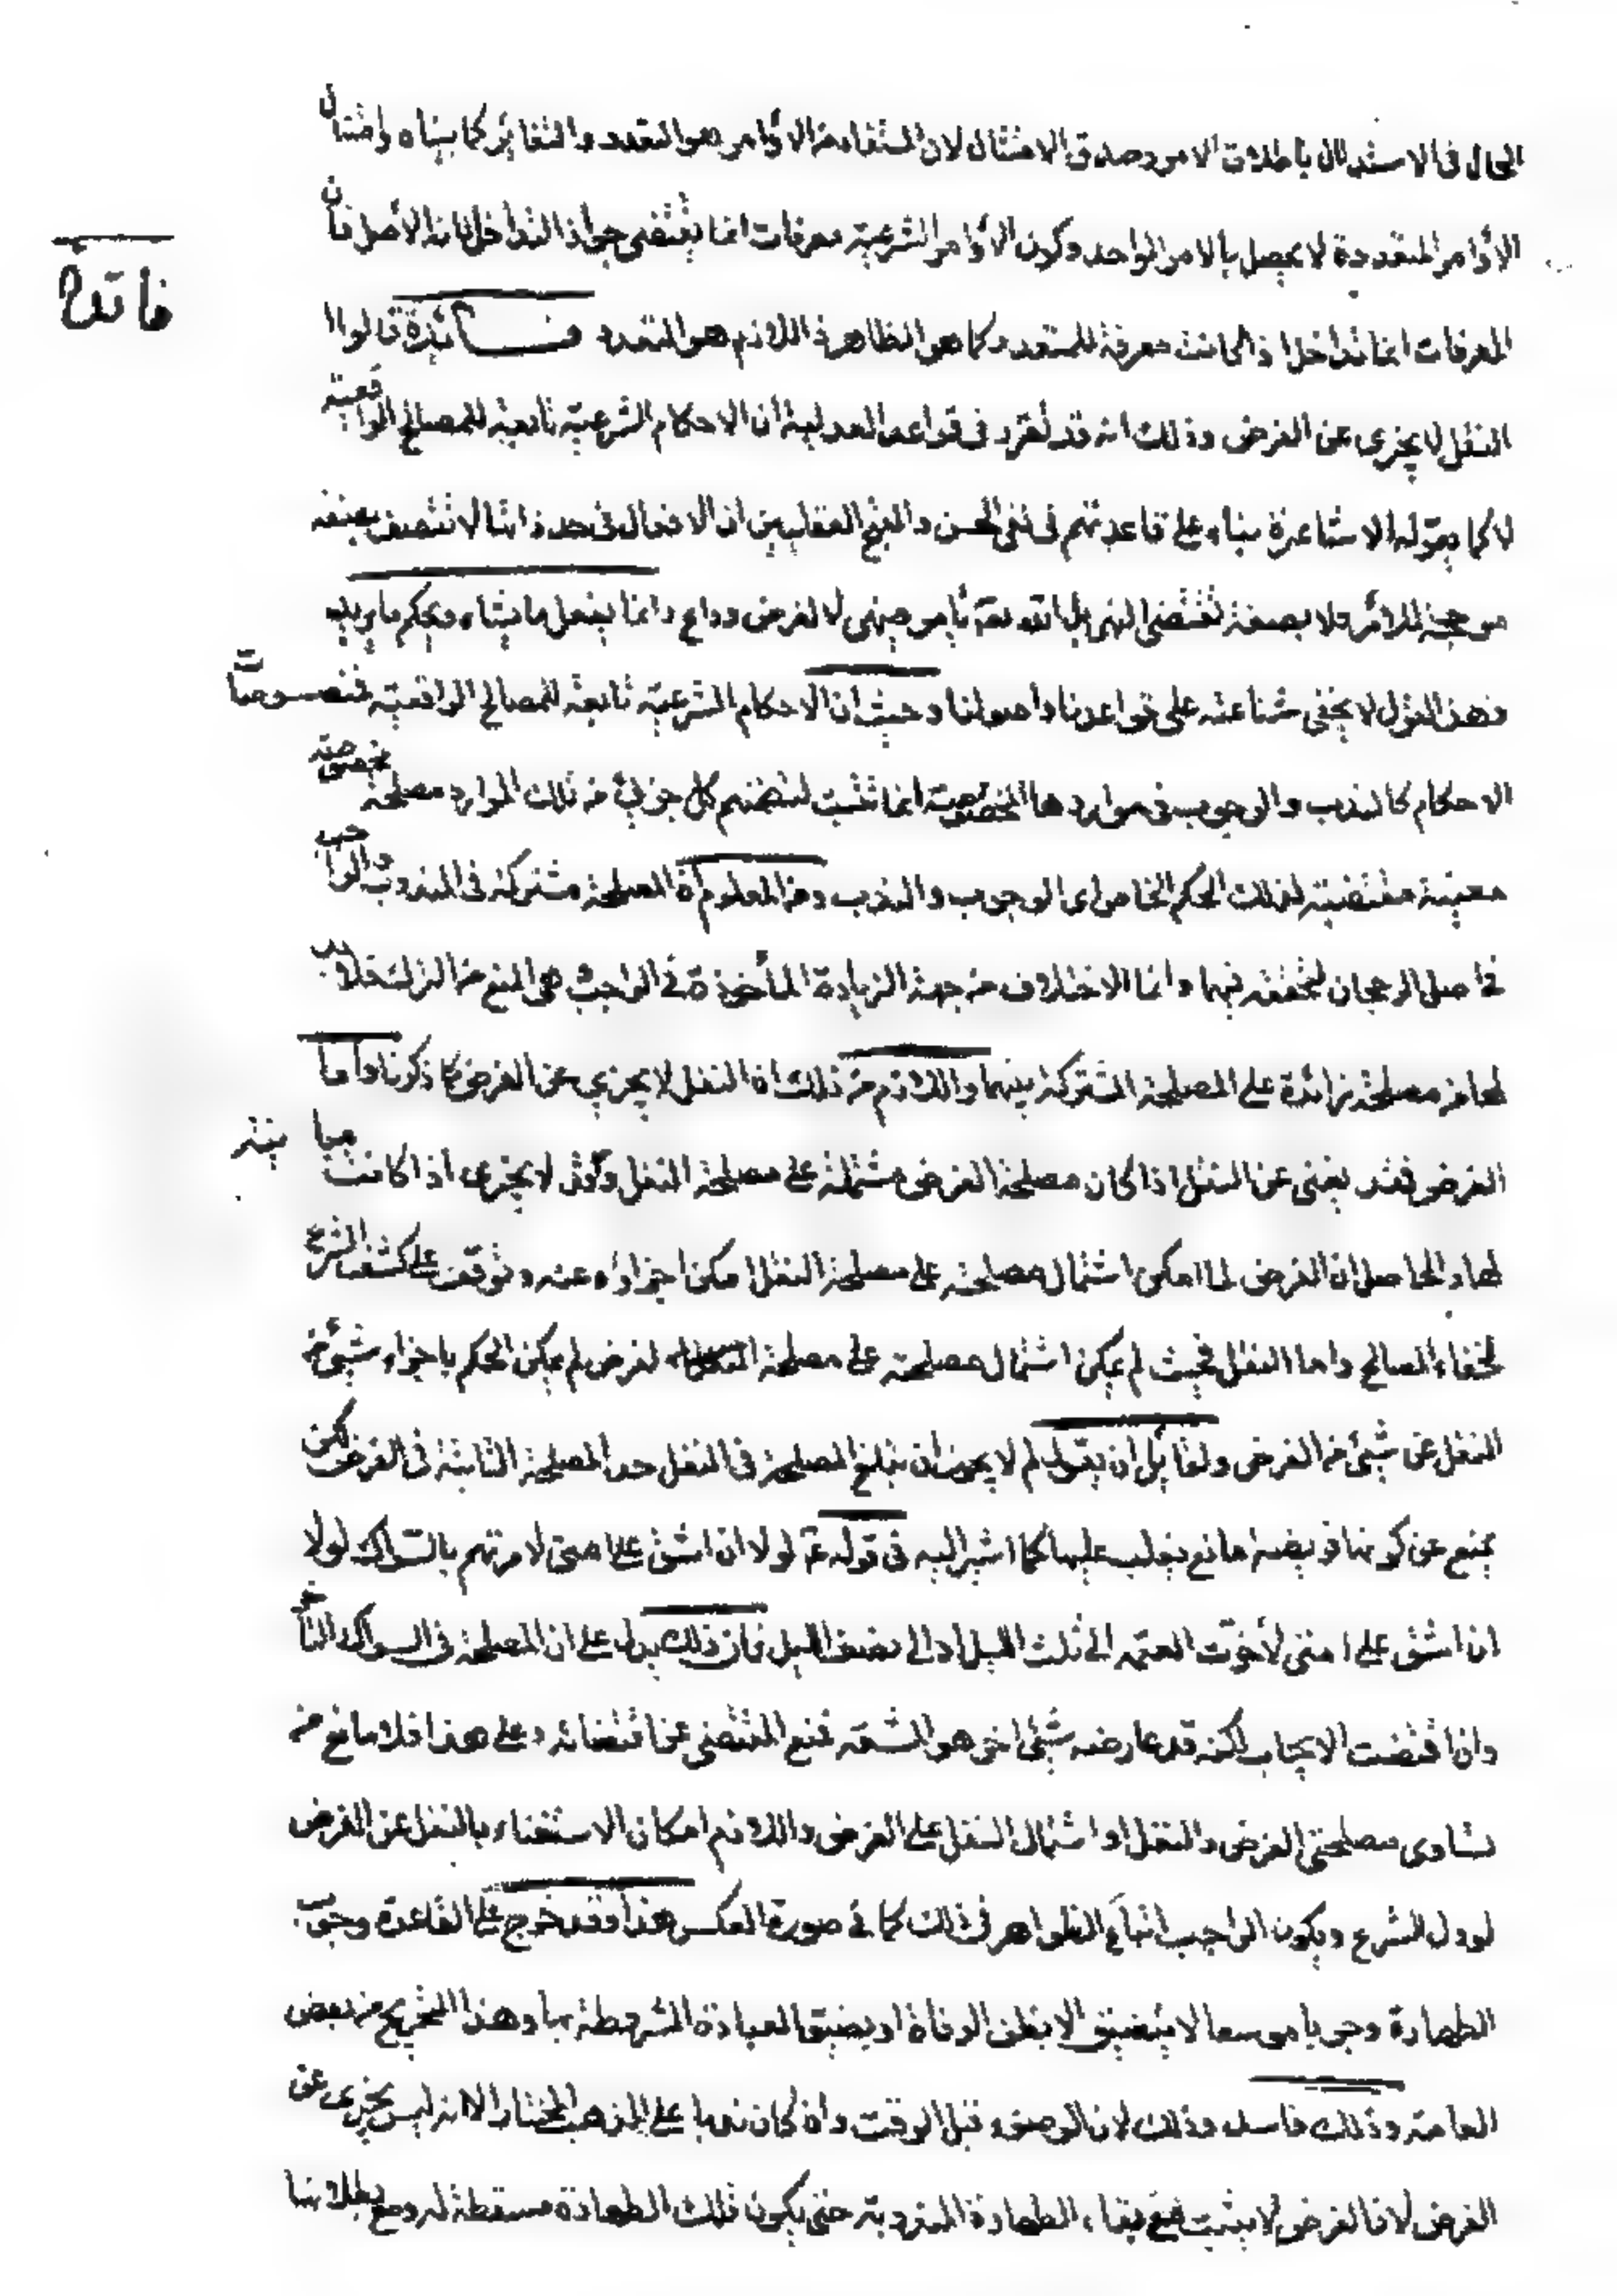 الحال فى الاستدلال باطلاق الامر وصدق الامتثال لان المستفاد من الاوامر هو التعدد والتغاير كما بيناه وامتثال
الأوامر المتعددة لا يحصل بالامر الواحد وكون الأوامر الشرعية معرفات انما يقتضى جواز التداخل لانه الأصل فان
فائدة
المعرفات انما تداخل اذ الكانت معرفة للمتعدد كما هو الظاهر فاللازم هو التعدد فـــائدة قالوا ا
النفل لا يجزى عن الفرض وذلك انه قد تقرر فى قواعد العدلية أن الاحكام الشرعيّة تابعة للمصالح الواقعية
لا كما يقوله الاشاعرة بناء على قاعدتهم فى نفى الحسن والقبح العقليين ان الافعال فى حد ذاتها لا تتصف بصفة
موجبة للامر ولا بصفة تقتضى النهى بل الله تعۤ يأمر وينهى لا لغرض وداع وانما يفعل ما يشاء ويحكم ما يريد
وهذا القول لا يخفى شناعته على قواعدنا وأصولنا وحيث ان الاحكام الشرعيّة تابعة للمصالح الواقعية فخصوصيات
الاحكام كالندب والوجوب فى مواردها المخصوصة انما تثبت لتضمنهم كل جزئى من تلك الموارد مصلحة مخصوصة
معينة مقتضية لذلك الحكم الخاص اى الوجوب والندب ومن المعلوم أن المصلحة مشتركة فى المندوب والواجب
فى اصل الرجحان لتحققه فيهما وانما الاختلاف من جهة الزيادة المأخوذة فى الواجب هى المنع من الترك فلابد
لها من مصلحة زائدة على المصلحة المشتركة بينهما واللازم من ذلك ان النفل لا يجزى عن الفرض كما ذكرنا واما
الفرض فقد يغنى عن النفل اذا كان مصلحة الفرض مشتملة على مصلحة النفل وقد لا يجزى اذا كانت مباينة
لها والحاصل ان الفرض لما امكن اشتمال مصلحته على مصلحة النفل امكن اجزاؤه عنه وتوقف على كشف الشرع
لخفاء المصالح واما النفل فحيث لم يمكن اشتمال مصلحته على مصلحة الفرض لم يمكن الحكم باجزاء شئ من
النفل عن شئ من الفرض ولقائل أن يقول لم لا يجوز ان تبلغ المصلحة فى النفل حد المصلحة الثابتة فى الفرض لكن
يمنع عن كونها فريضة مانع يغلب عليها كما اشير اليه فى قوله عۤ لولا ان اشق على امتى لامرتهم بالسّواك لولا
ان اشق على امتى لأخرت العتمة الى ثلث الليل او الى نصف الليل فان ذلك يدل على ان المصلحة فى السواك والتأخير
وان اقتضت الايجاب لكنه قد عارضه شئ اخر هو المشقة فمنع المقتضى عن اقتضائه وعلى هذا فلا مانع من
تساوى مصلحتى الفرض والنفل او اشتمال النفل على الفرض واللازم امكان الاستغناء بالنفل عن الفرض
لو دل الشرع ويكون الواجب اتباع الظواهر فى ذلك كما فى صورة العكس هذا وقد خرج على القاعدة وجوب
الطهارة وجوبا موسعا لا يتضيق الا بظن الوفاة او بضيق العبادة المشروطة بها وهذا التخريج من بعض
العامة وذلك فاسد وذلك لان الوضوء قبل الوقت وان كان ندبا على المذهب المختار الا انه ليس يجزى عن
الفرض لان الفرض لا يثبت مع بقاء الطهارة المندوبة حتى يكون تلك الطهارة مسقطة له ومع بطلانها